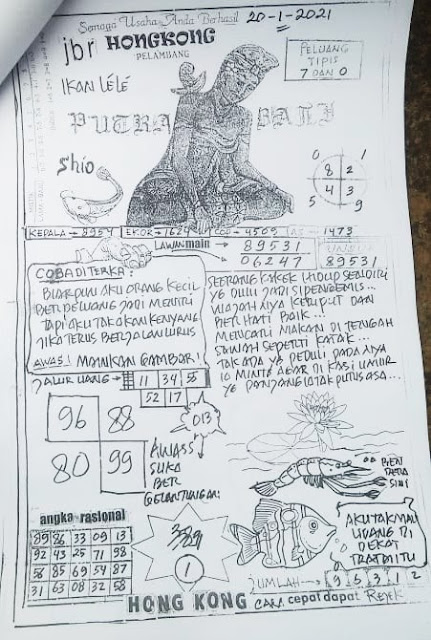 Semoga Usaha Anda Berhasil
20-1-2021
jbr HONGKONG
PELAMBANG
PELUANG
TIPIS
7 DAN 0
IKAN LELE
PUTRA BALI
Shio
0 1
8 2
4 3
5 9
KEPALA = 8954
EKOR = 1624
COP = 4509
AS = 1473
LAWAN main
89531
06247
89531
COBA DITERKA:
BIARPUN AKU ORANG KECIL
BERPELUANG JADI MENTRI
TAPI AKU TAK AKAN KENYANG
JIKA TERUS BERJALAN LURUS
AWAS! MAINKAN GAMBAR!
SEORANG KAKEK HIDUP SENDIRI
YG DULU JADI SI PENGEMIS..
WAJAH NYA KERIPUT DAN
BERHATI BAIK...
MENCARI MAKAN DI TENGAH
SAWAH SEPERTI KATAK...
TAK ADA YG PEDULI PADA NYA
IA MINTA AGAR DI KASI UMUR
YG PANJANG
PUTUS ASA...
JALUR UANG
11 34 55
52 17
96 88
80 99
013
AWASS
SUKA
BER
GELANTUNGAN
BERI
SINI
angka rasional
89 86 33 09 13
92 43 25 71 98
56 85 69 54 87
31 63 08 32 58
389
1
AKU TAK MAU
UDANG DI
DEKAT
TRATAI ITU
JUMLAH
9 5 3 1 2
HONG KONG CARA cepat dapat REJEK